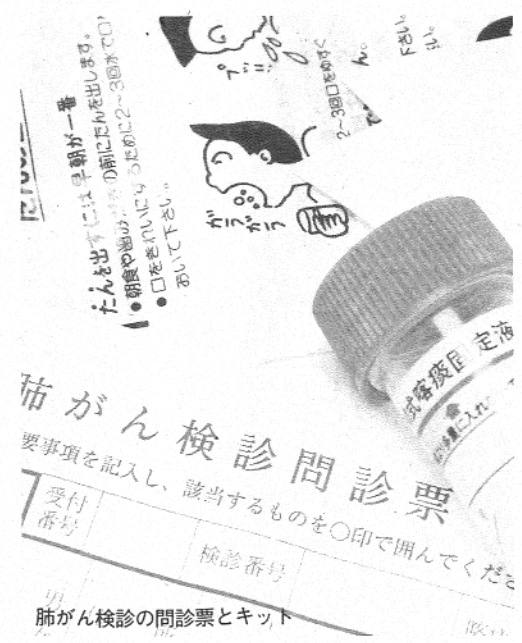 たんを出すには早朝が一番
●朝食や歯の前にたんを出します。
●口をきれいにするために2～3回水で口
おいて下さい。
プッ!!
2～3回口をゆすぐ
ん。
下さい。
ガラガラ
式喀痰固定液
肺がん検診問診票
要事項を記入し、該当するものを○印で囲んでくださ
受付
番号
検診番号
男
肺がん検診の問診票とキット